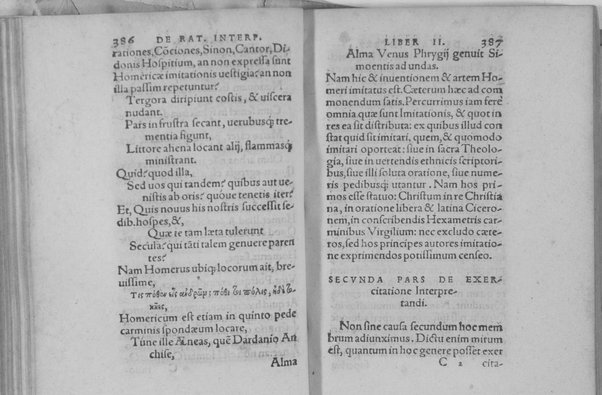 386 DE RAT. INTERP.
rationes, Cōciones, Sinon, Cantor, Di
donis Hospitium, an non expressa sunt
Homericæ imitationis uestigia? an non
illa passim repetuntur?
Tergora diripiunt costis, & uiscera
nudant.
Pars in frustra secant, uerubusq́; tre
mentia figunt,
Littore ahena locant alij, flammasq́;
ministrant.
Quid? quod illa,
Sed uos qui tandem? quibus aut ue
nistis ab oris? quóue tenetis iter?
Et, Quis nouus hic nostris successit se
dib. hospes, &,
Quæ te tam læta tulerunt
Secula? qui tāti talem genuere paren
tes?
Nam Homerus ubiq́; locorum ait, bre
uissime,
Homericum est etiam in quinto pede
carminis spondæum locare,
Tune ille Æneas, quē Dardanio An
chisæ,
Alma
LIBER II. 387
Alma Venus Phrygij genuit Si
moentis ad undas.
Nam hic & inuentionem & artem Ho
meri imitatus est. Cæterum hæc ad com
monendum satis. Percurrimus iam ferè
omnia quæ sunt Imitationis, & quot in
res ea sit distributa: ex quibus illud con
stat quid sit imitari, quem, & quomodo
imitari oporteat: siue in sacra Theolo
gia, siue in uertendis ethnicis scriptori
bus, siue illi soluta oratione, siue nume
ris pedibusq́; utantur. Nam hos pri
mos esse statuo: Christum in re Christia
na, in oratione libera & latina Cicero
nem, in conscribendis Hexametris car
minibus Virgilium: nec excludo cæte
ros, sed hos principes autores imitatio
ne exprimendos potissimum censeo.
SECVNDA PARS DE EXER
citatione Interpre
tandi.
Non sine causa secundum hoc mem
brum adiunximus. Dictu enim mirum
est, quantum in hoc genere posset exer
C 2 cita-